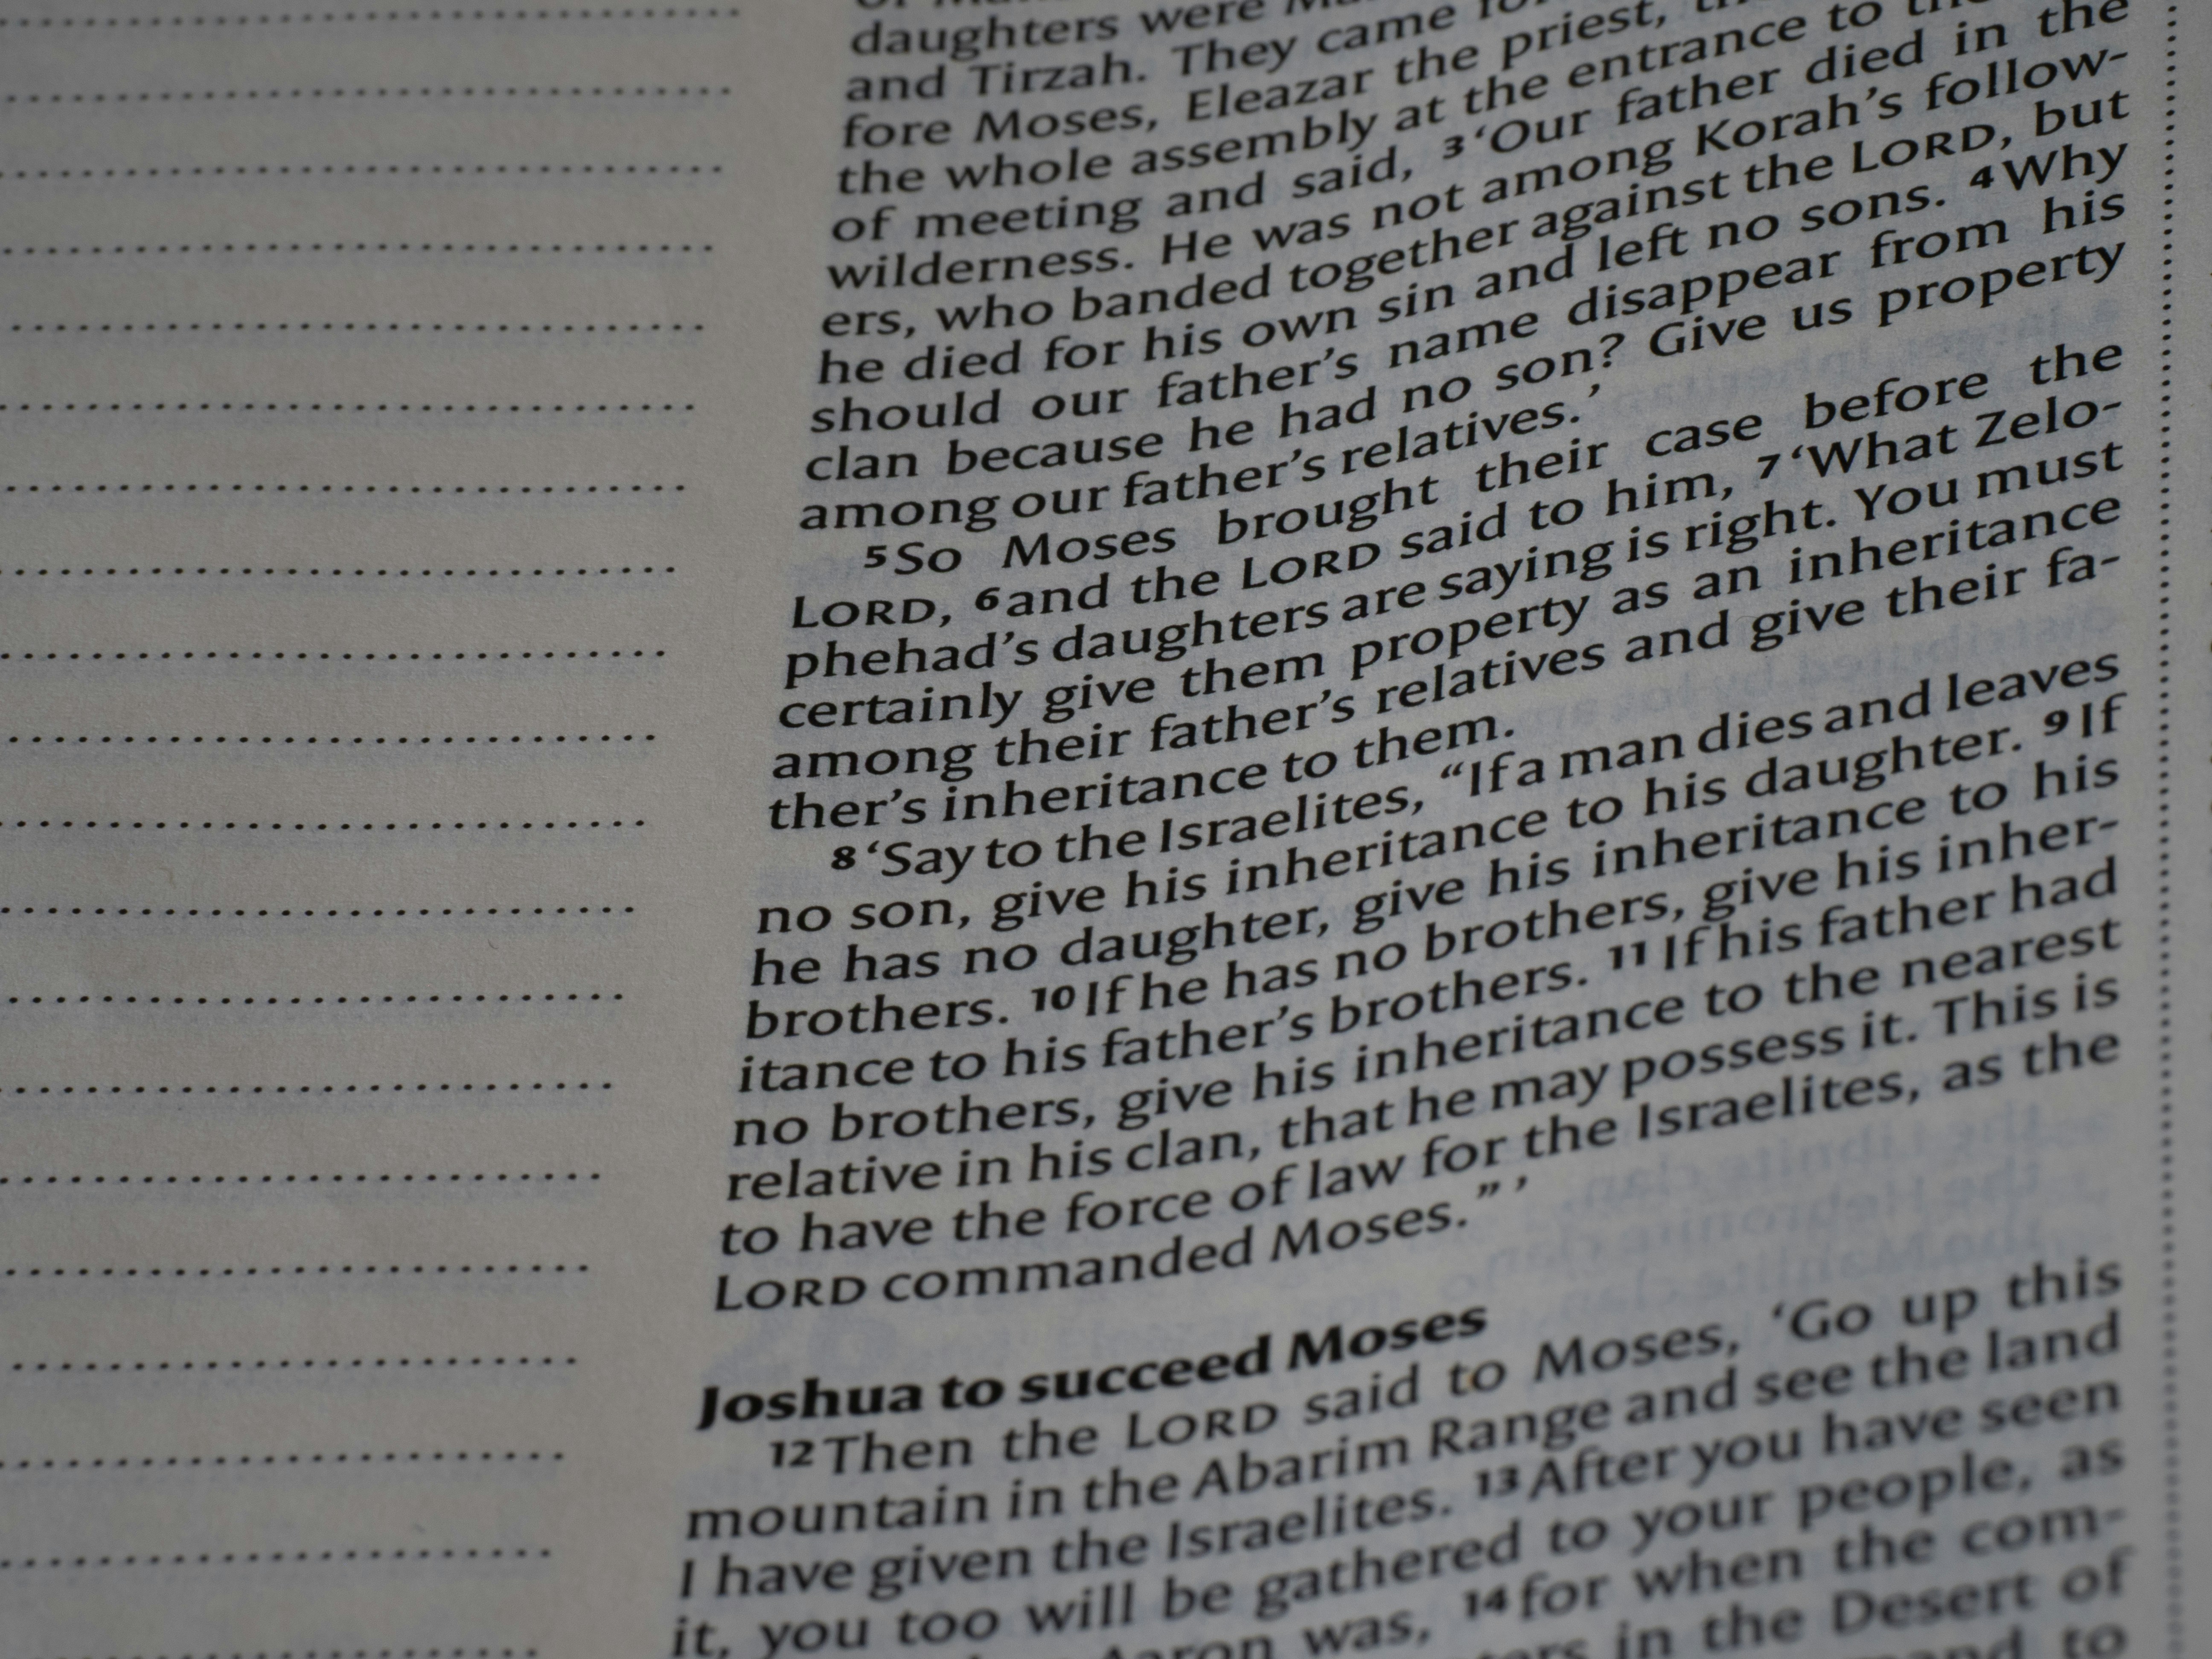 daughters were
and Tirzah. They came
fore Moses, Eleazar the priest,
the whole assembly at the entrance to
of meeting and said, 3 ‘Our father died in the
wilderness. He was not among Korah’s follow-
ers, who banded together against the LORD, but
he died for his own sin and left no sons. 4 Why
should our father’s name disappear from his
clan because he had no son? Give us property
among our father’s relatives.’
5 So Moses brought their case before the
LORD, 6 and the LORD said to him, 7 ‘What Zelo-
phehad’s daughters are saying is right. You must
certainly give them property as an inheritance
among their father’s relatives and give their fa-
ther’s inheritance to them.
8 ‘Say to the Israelites, “If a man dies and leaves
no son, give his inheritance to his daughter. 9 If
he has no daughter, give his inheritance to his
brothers. 10 If he has no brothers, give his inher-
itance to his father’s brothers. 11 If his father had
no brothers, give his inheritance to the nearest
relative in his clan, that he may possess it. This is
to have the force of law for the Israelites, as the
LORD commanded Moses.” ’
Joshua to succeed Moses
12 Then the LORD said to Moses, ‘Go up this
mountain in the Abarim Range and see the land
I have given the Israelites. 13 After you have seen
it, you too will be gathered to your people, as
Aaron was, 14 for when the com-
in the Desert of
to